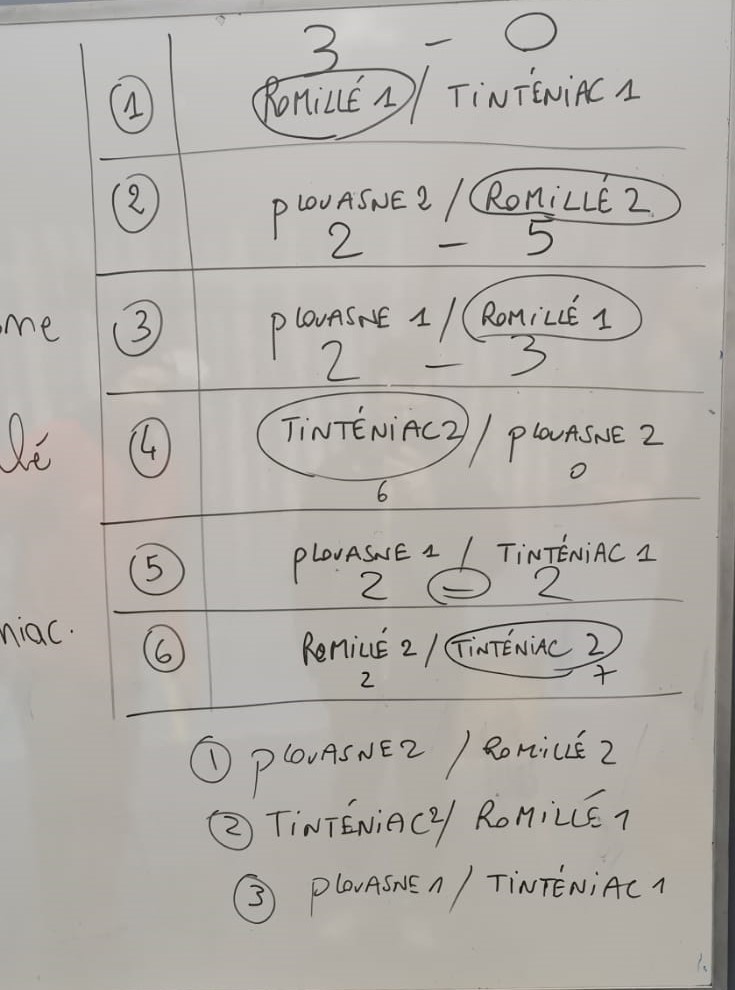 3 - 0
① ROMILLÉ 1 / TINTÉNIAC 1
② PLOUASNE 2 / ROMILLÉ 2
2 - 5
me
③ PLOUASNE 1 / ROMILLÉ 1
2 - 3
lé
④ TINTÉNIAC 2 / PLOUASNE 2
6 0
⑤ PLOUASNE 1 / TINTÉNIAC 1
2 = 2
niac.
⑥ ROMILLÉ 2 / TINTÉNIAC 2
2 7
① PLOUASNE 2 / ROMILLÉ 2
② TINTÉNIAC 2 / ROMILLÉ 1
③ PLOUASNE 1 / TINTÉNIAC 1